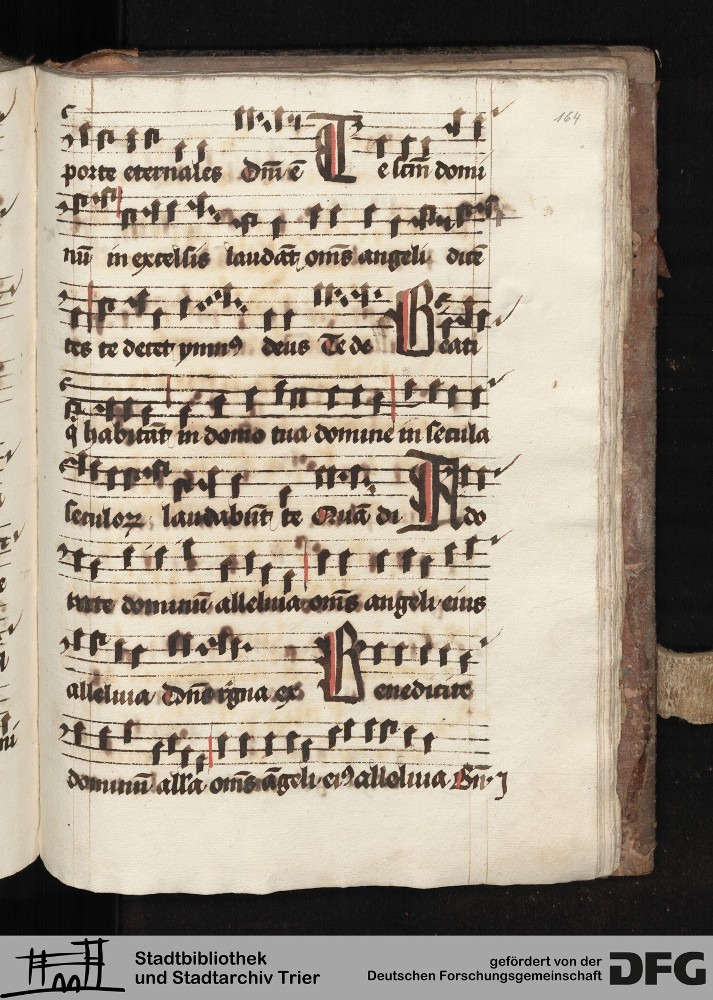 164
porte eternales Dm̄ ē Te sctm̄ domi
nū in excelsis laudāt om̄s angeli dicē
tes te decet ymnꝰ deus Te de Beati
q̄ habitāt in domo tua domine in secula
seculoꝝ laudabūt te Quā di Ado
rate dominū alleluia om̄s angeli eius
alleluia Dn̄s rgna ex Benedicite
dominū all'a om̄s āgeli eiꝰ alleluia
Stadtbibliothek
und Stadtarchiv Trier
gefördert von der
Deutschen Forschungsgemeinschaft
DFG